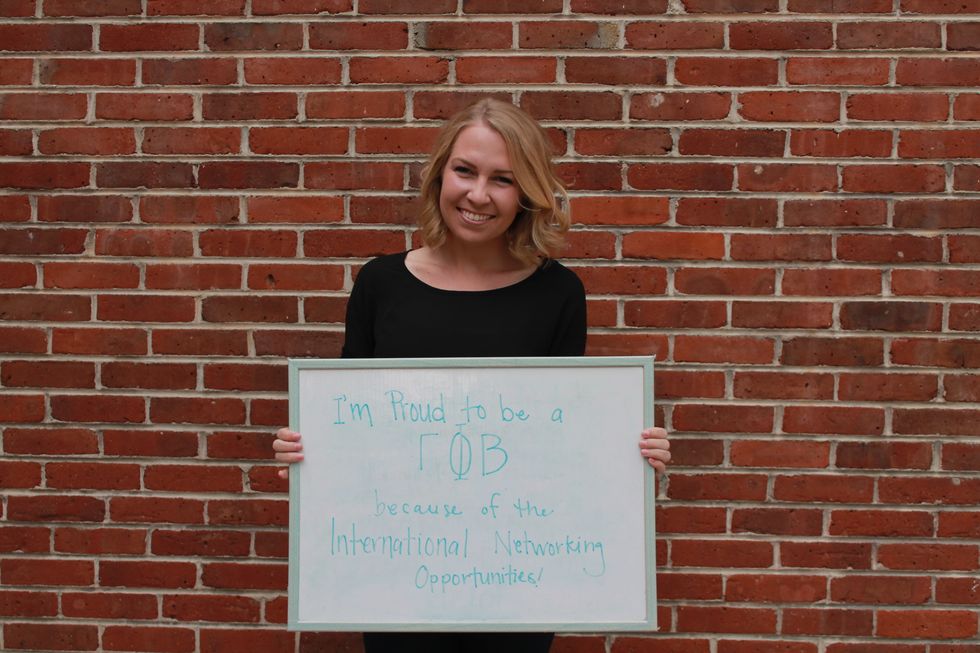 I'm Proud to be a
ΓΦΒ
because of the
International Networking
Opportunities!